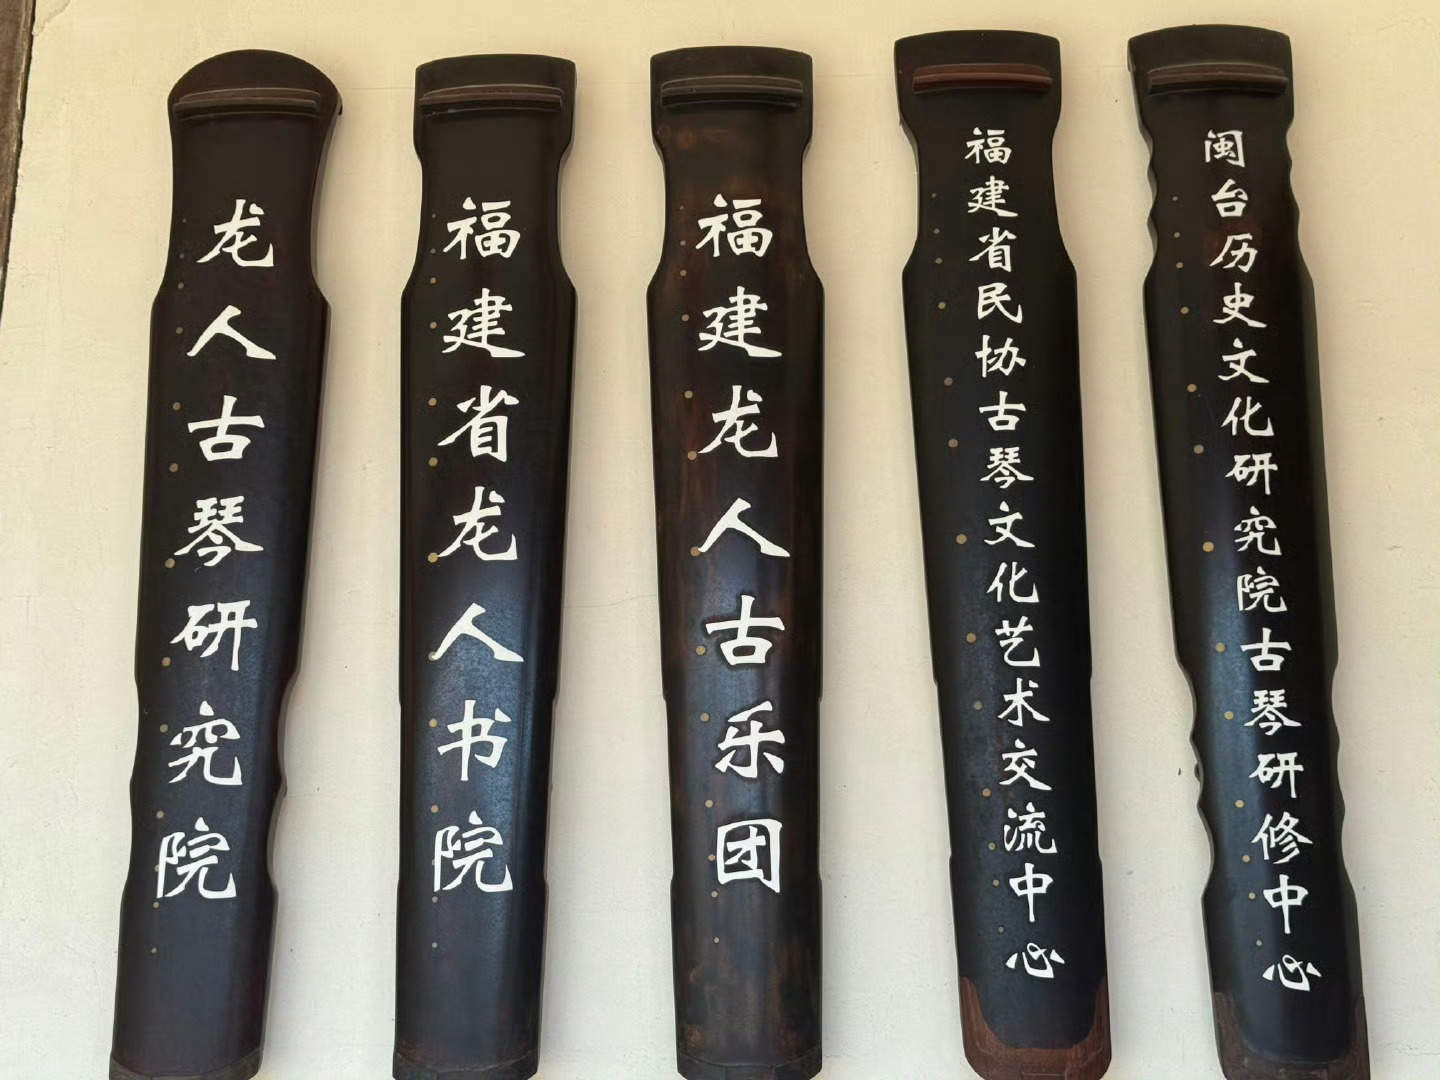 龙人古琴研究院
福建省龙人书院
福建龙人古乐团
福建省民协古琴文化艺术交流中心
闽台历史文化研究院古琴研修中心